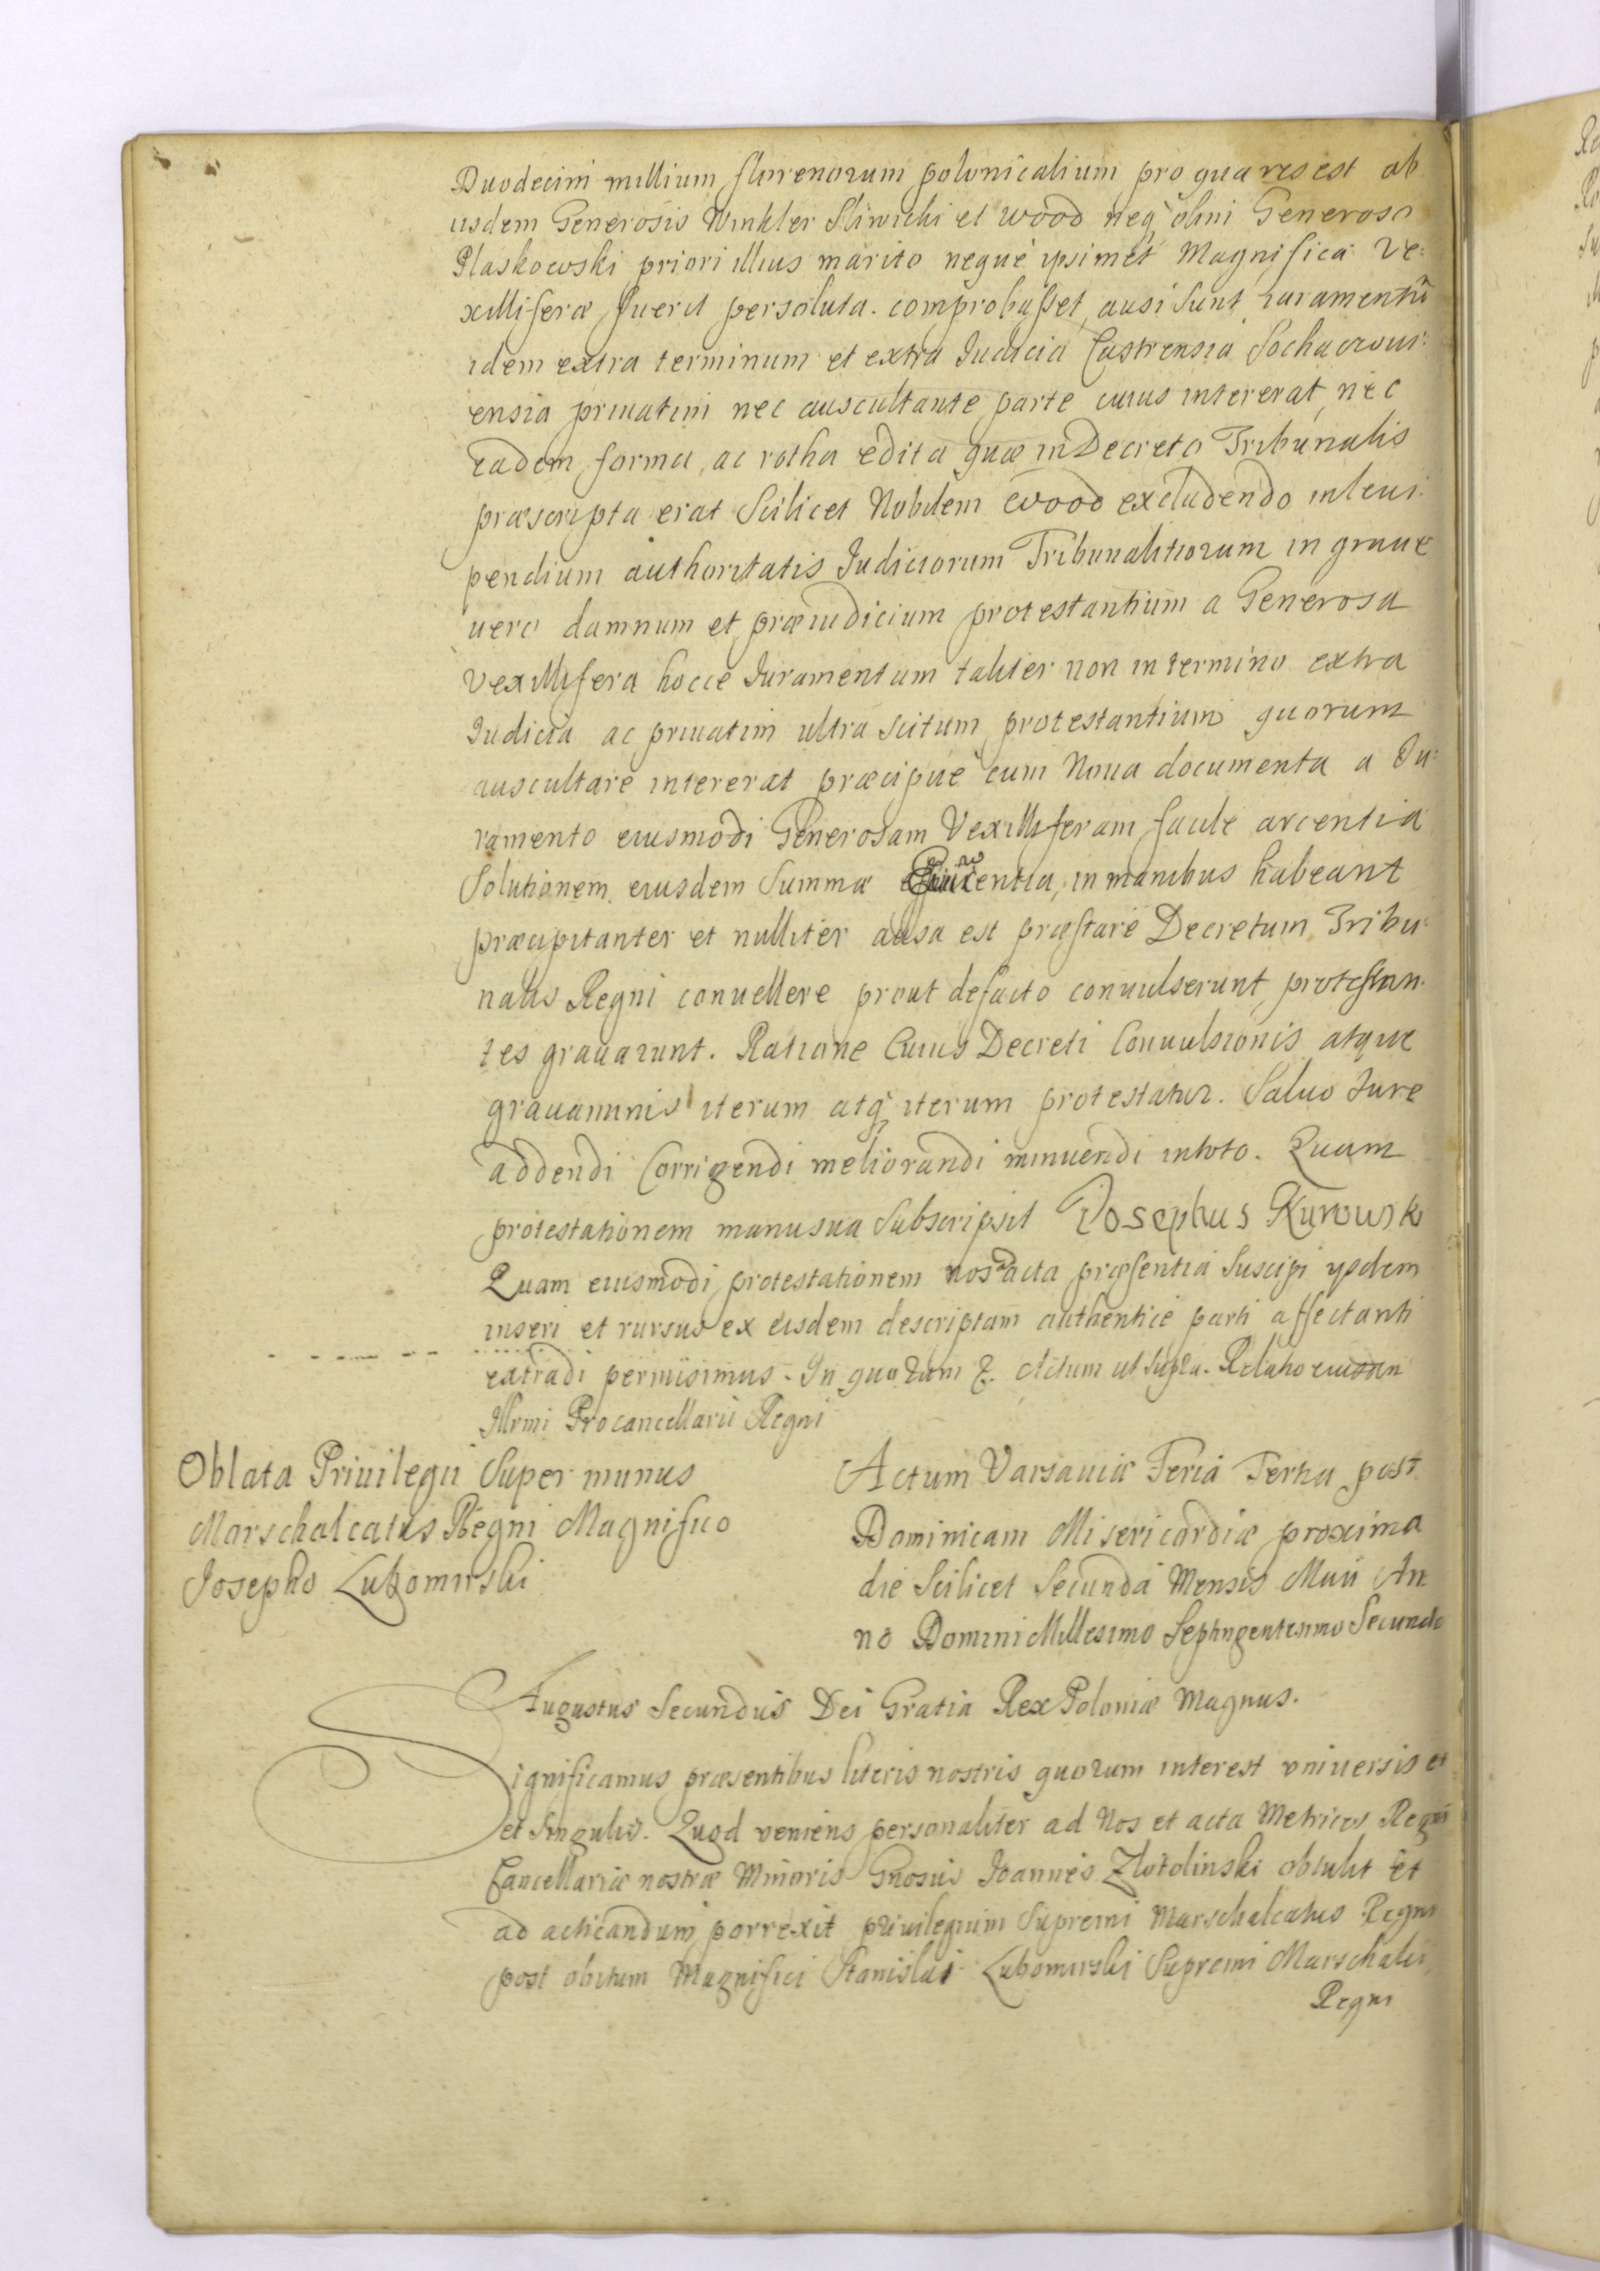 Duodecim millium florenorum polonicalium pro qua res est ab
iisdem Generosis Winkler Sliwicki et Wood neq olim Generoso
Plaskowski priori illius marito neque ipsimet Magnifica Ve:
xilliferæ fuerit persoluta. comprobasset, ausi sunt iuramentũ
idem extra terminum et extra Iudicia Castrensia Sochaczoui:
ensia priuatim nec auscultante parte cuius intererat, nec
eadem forma, ac rotha edita quæ in Decreto Tribunalis
præscripta erat Scilicet Nobilem Wood excludendo in leui:
pendium authoritatis Iudiciorum Tribunalitiorum in graue
uero damnum et præiudicium protestantium a Generosa
Vexillifera hocce Iuramentum taliter non in termino extra
Iudicia ac priuatim ultra scitum protestantium quorum
auscultare intererat præcipue cum Noua documenta a Iu:
ramento eiusmodi Generosam Vexilliferam facile arcentia
Solutionem eiusdem Summæ in manibus habeant
præcipitanter et nulliter ausa est præstare Decretum Tribu:
nalis Regni conuellere prout defacto conuulserunt, protestan:
tes grauarunt. Ratione Cuius Decreti Conuulsionis atque
grauaminis iterum atq iterum protestatur. Saluo Iure
addendi Corrigendi meliorandi minuendi in toto. Quam
protestationem manu sua Subscripsit Josephus Kurowski
Quam eiusmodi protestationem nos ad acta præsentia Suscipi ysdem
inseri et rursus ex eisdem descriptam authentice parti affectanti
extradi permisimus. In quorum &. Actum ut supra. Relatio eiusdem
Illrmi Procancellarii Regni
Oblata Priuilegii Super munus
Marschalcatus Regni Magnifico
Josepho Lubomirski
Actum Varsauiæ Feria Tertia post
Dominicam Misericordiæ proxima
die Scilicet Secunda Mensis Maii An
no Domini Millesimo Septingentesimo Secundo
Augustus Secundus Dei Gratia Rex Poloniæ Magnus.
Significamus præsentibus literis nostris quorum interest vniuersis et
et Singulis. Quod veniens personaliter ad Nos et acta Metrices Regni
Cancellariæ nostræ Minoris Gnosus Ioannes Zlotolinski obtulit et
ad acticandum porrexit priuilegium Supremi Marschalcatus Regni
post obitum Magnifici Stanislai Lubomirski Supremi Marschalci
Regni